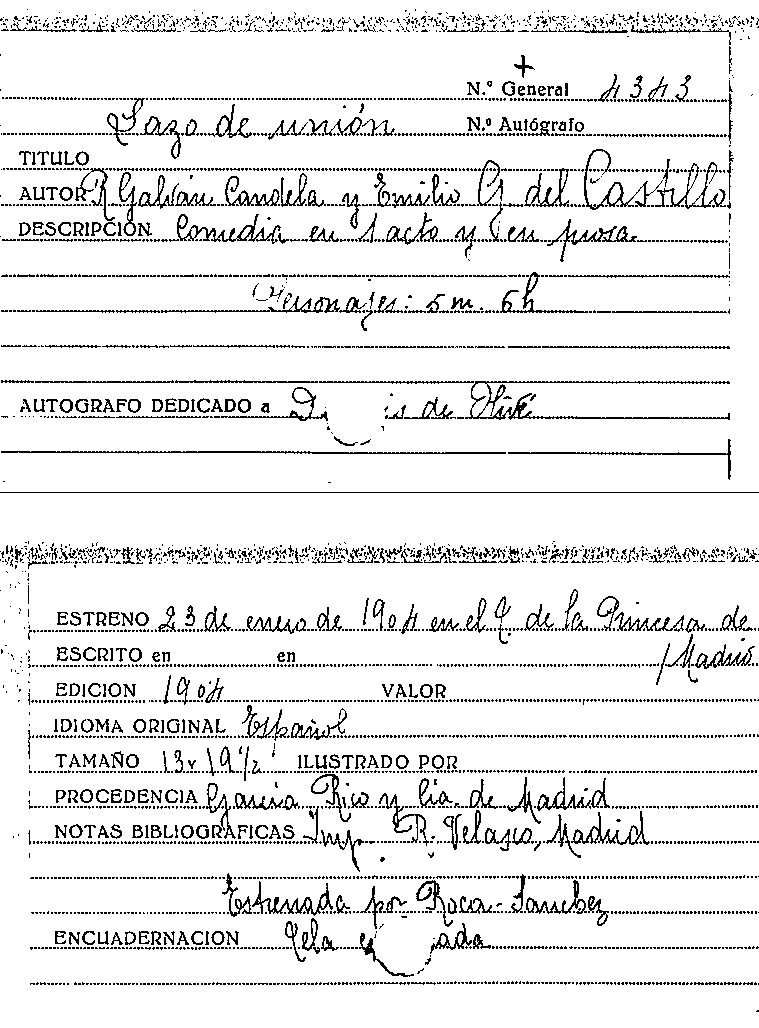 +
N.º General 4343
Lazo de unión N.º Autógrafo
TITULO
AUTOR R Galván Candela y Emilio G. del Castillo
DESCRIPCIÓN Comedia en 1 acto y en prosa.
Personajes: 5 m. 6h
AUTOGRAFO DEDICADO a de Olivé
ESTRENO 23 de enero de 1904 en el T. de la Princesa de
ESCRITO en en /Madrid
EDICION 1904 VALOR
IDIOMA ORIGINAL Español
TAMAÑO 13x19½ ILUSTRADO POR
PROCEDENCIA García Rico y Cia. de Madrid
NOTAS BIBLIOGRAFICAS Imp. R. Velasco, Madrid
Estrenada por Roca-Sanchez
ENCUADERNACION Tela